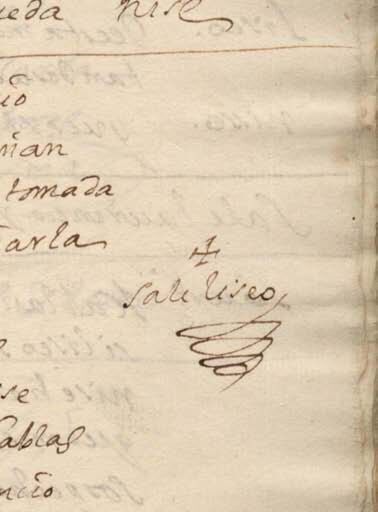 ueda nise
io
nian
tomada
arla
sale liseo
se
hablas
ncio